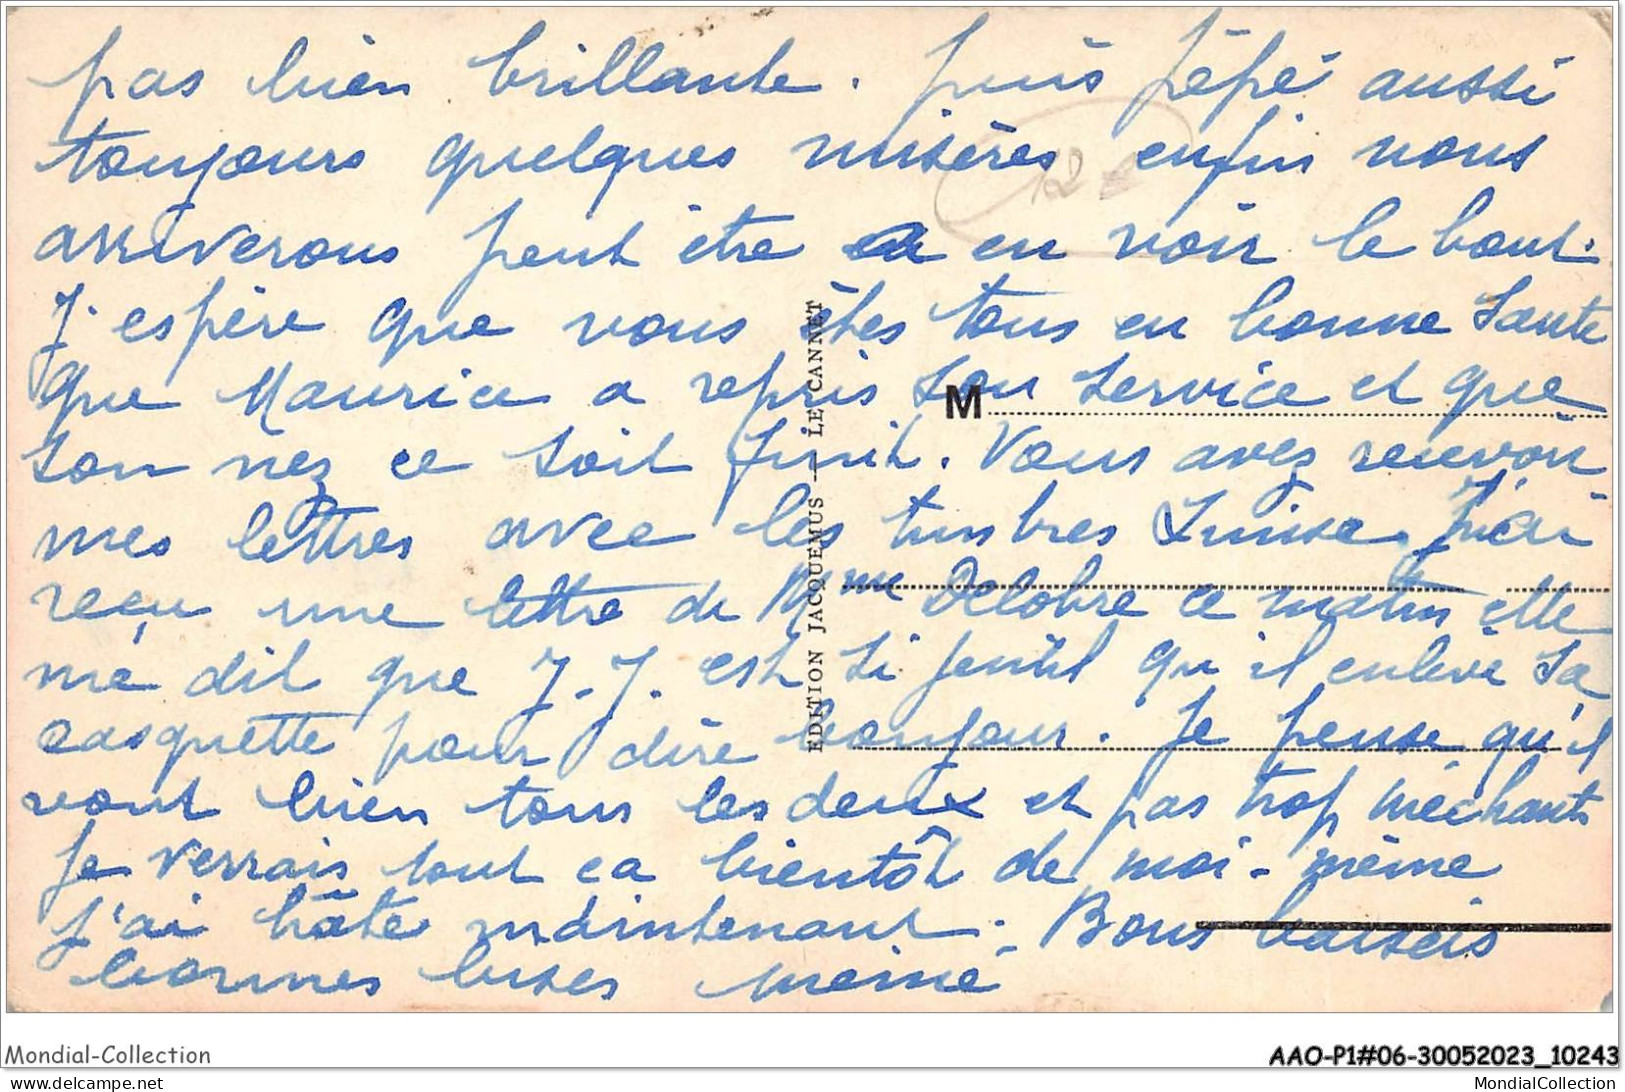 pas bien brillante. puis pépé aussi
toujours quelques misères enfin nous
arriverons peut être en voir le bout.
J'espère que vous êtes tous en bonne santé
que Maurice a repris son service et que
son nez ce soit finit. Vous avez
mes lettres avec les timbres Suisse. J'ai
reçu une lettre de Mme Delobre ce matin elle
me dit que J.J. est si jentil qu'il enlève sa
casquette pour dire bonjour. Je pense qu'il
vont bien tous les deux et pas trop méchants
Je verrais tout ca bientôt de moi-même
j'ai hâte maintenant. Bons baisers
bonnes bises mémé
12
M
EDITION JACQUEMUS — LE CANNET
Mondial-Collection
AAO-P1#06-30052023_10243
www.delcampe.net
MondialCollection